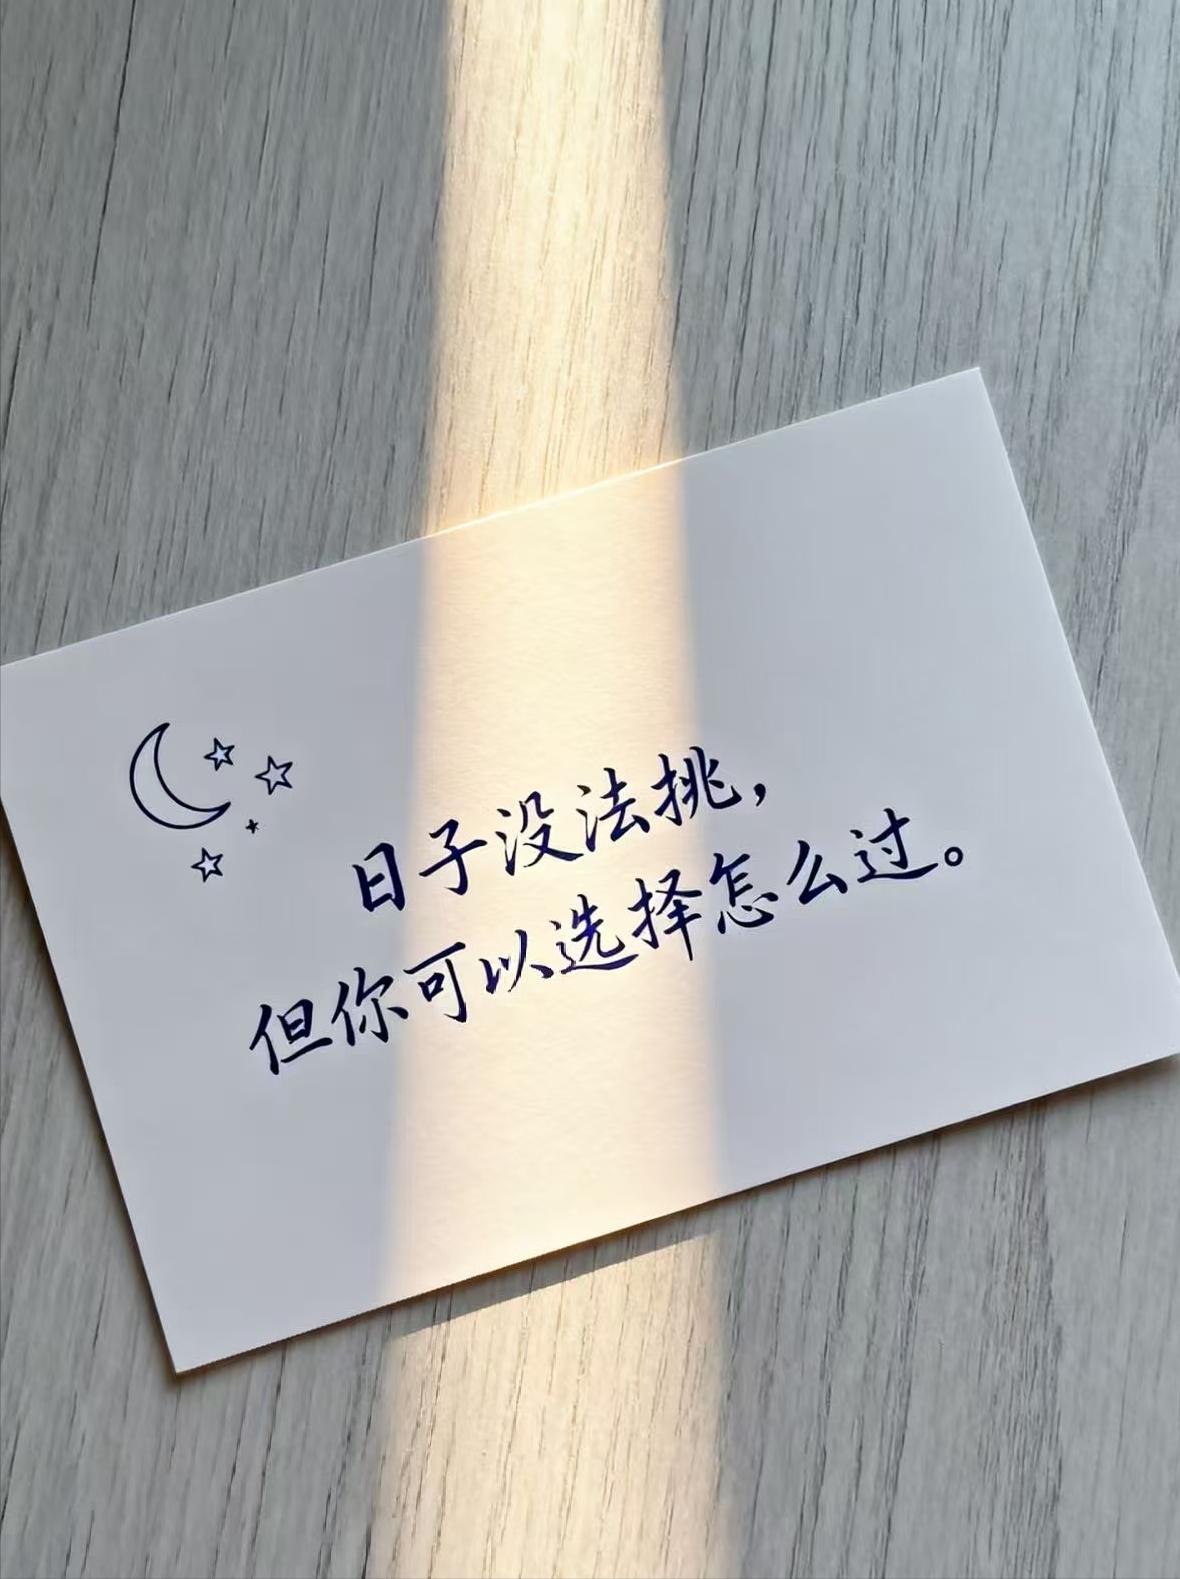 日子没法挑，
但你可以选择怎么过。